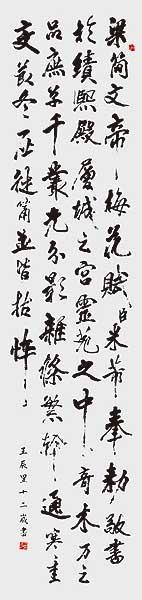 梁簡文帝梅花賦臣米芾奉敕敬書
於績熙殿層城之宮靈苑之中奇木万
品庶草千叢光分影雜條繁幹通寒圭
變節冬灰徙筩並皆枯悴
壬辰十二歲書